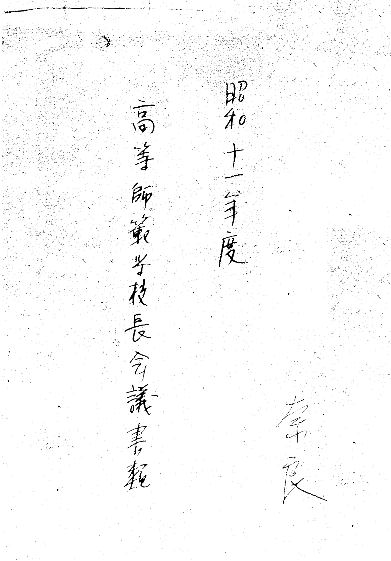 昭和十一年度
高等師範学校長会議書類
奈良